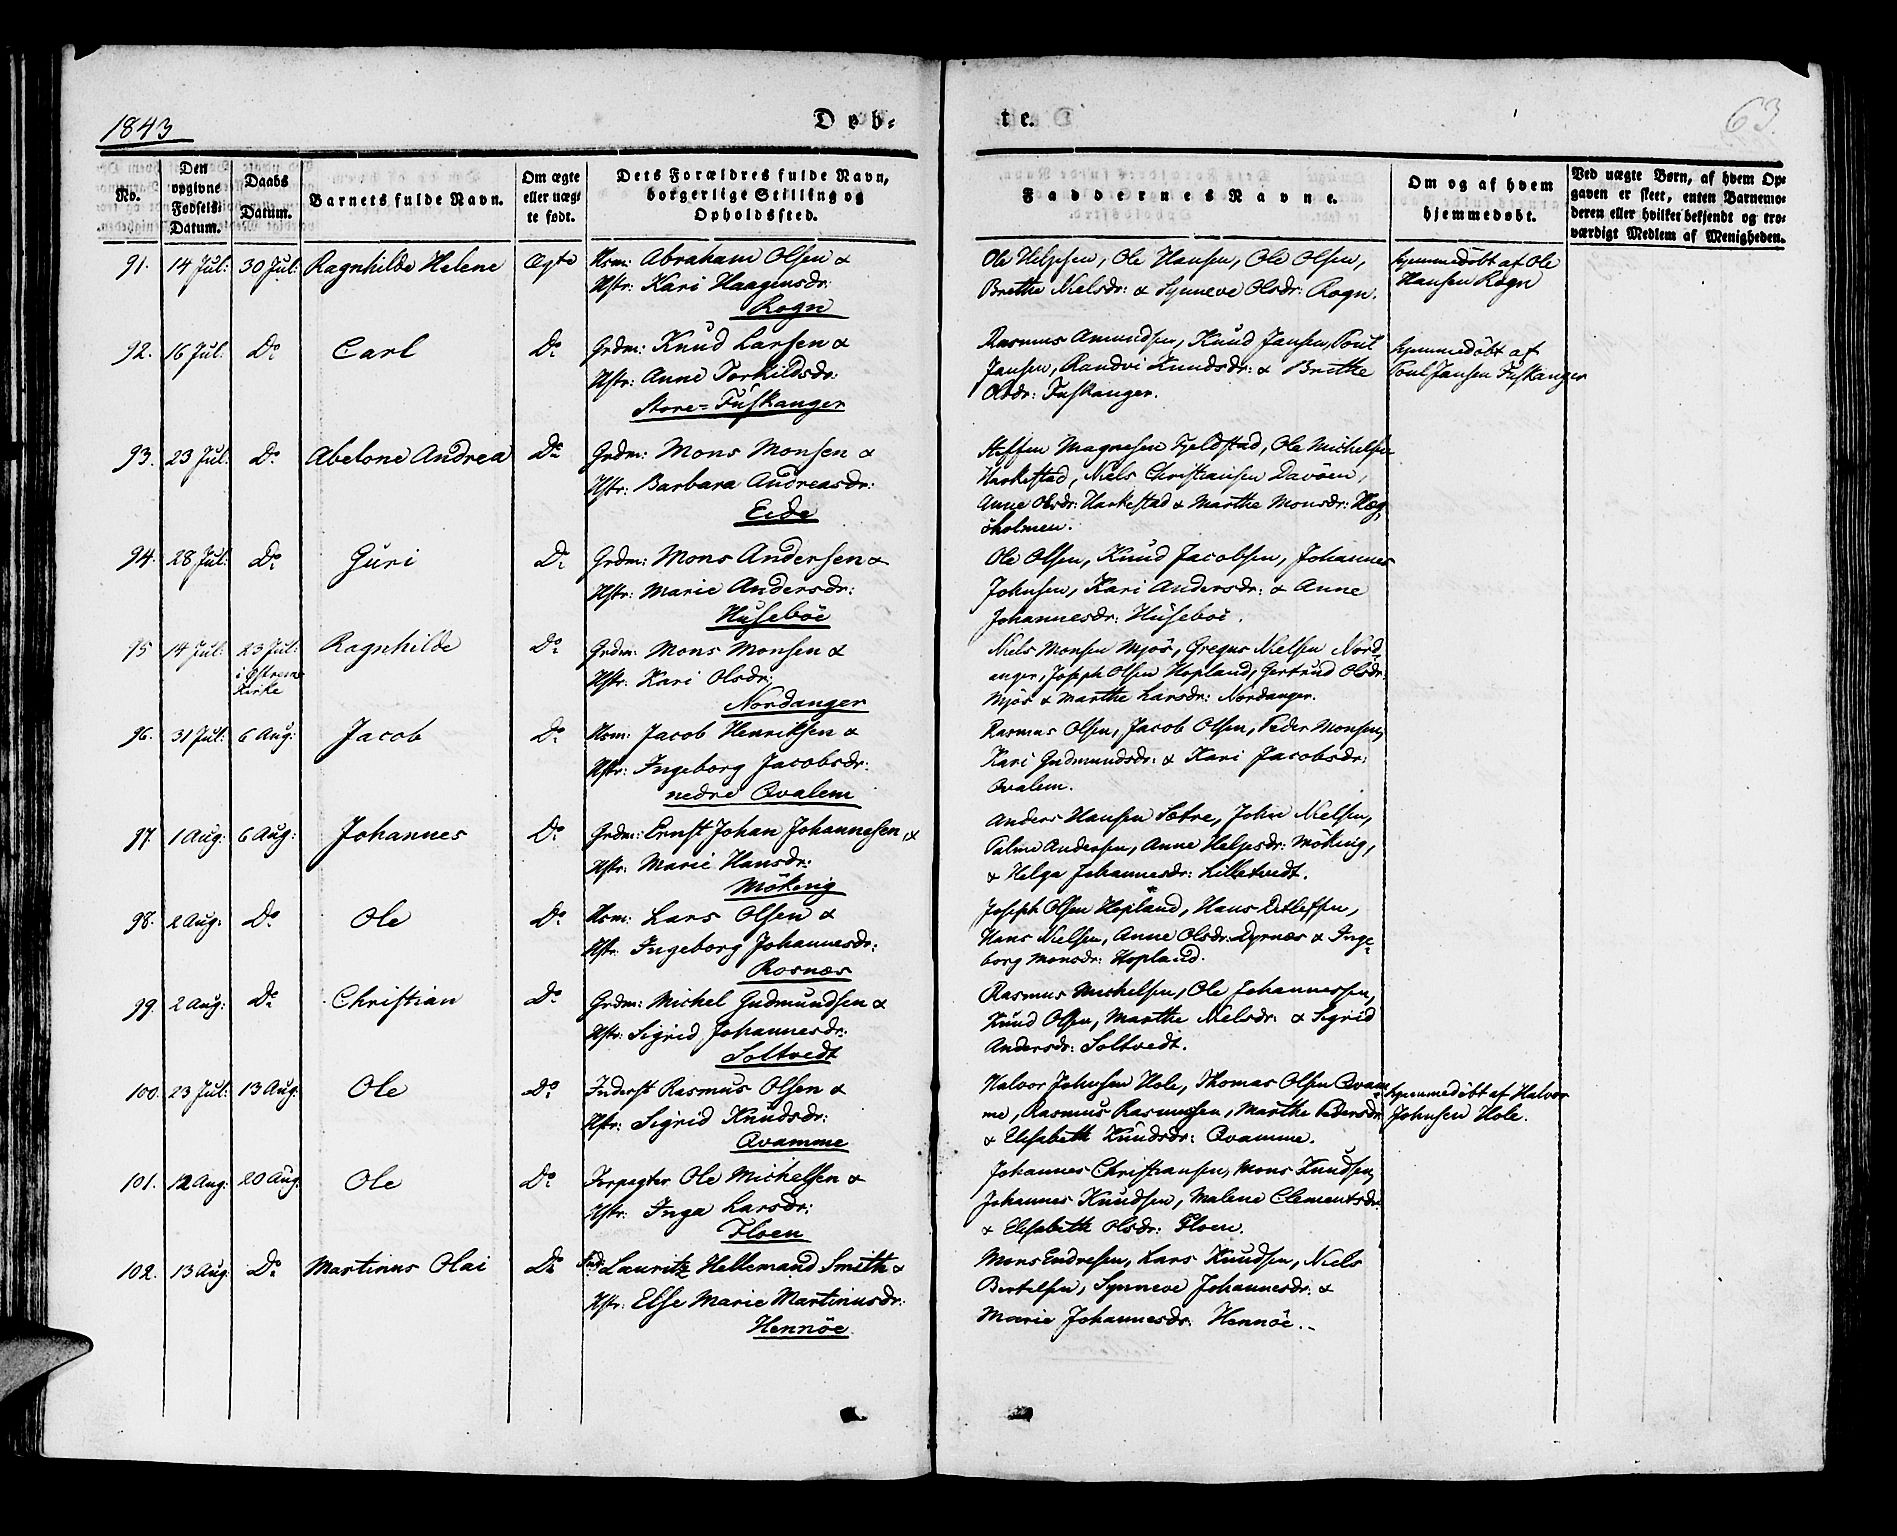 1843
Døb-
te.
63.
No.
Den opgivne Fødsels-Datum.
Daabs Datum.
Barnets fulde Navn.
Om ægte eller uægte født.
Dets Forældres fulde Navn, borgerlige Stilling og Opholdssted.
Faddernes Navne.
Om og af hvem hjemmedøbt.
Ved uægte Børn, af hvem Opgaven er skeet, enten Barnemoderen eller hvilket bekjendt og troværdigt Medlem af Menigheden.
91. 14 Jul: 30 Jul: Ragnhilde Helene Ægte Hsm: Abraham Olsen &
Hstr: Kari Haagensdr:
Rogn
Ole Helgesen, Ole Hansen, Ole Olsen,
Brethe Nielsdr: & Synneve Olsdr: Rogn.
hjemmedöbt af Ole
Hansen Rogn
92. 16 Jul: Do Carl Do Grdm: Knud Larsen &
Hstr: Anne Torkildsdr:
Store=Fuskanger
Rasmus Amundsen, Knud Jansen, Poul
Jansen, Randvi Knudsdr: & Brithe
Olsdr: Fuskanger.
hjemmedöbt af
Poul Jansen Fuskanger
93. 23 Jul: Do Abelone Andrea Do Grdm: Mons Monsen &
Hstr: Barbara Andreasdr:
Eide
Steffen Magnesen Fjeldstad, Ole Michelsen
Harkestad, Niels Christiansen Davöen,
Anne Olsdr: Harkestad & Marthe Monsdr: Hæg,
öholmen.
94. 28 Jul: Do Guri Do Grdm: Mons Andersen &
Hstr: Marie Andersdr:
Huseböe
Ole Olsen, Knud Jacobsen, Johannes
Johnsen, Kari Andersdr: & Anne
Johannesdr: Huseböe.
95 14 Jul: 23 Jul:
i Østreim
Kirke
Ragnhilde Do Grdm: Mons Monsen &
Hstr: Kari Olsdr:
Nordanger
Niels Monsen Mjös, Gregus Nielsen Nord-
anger, Joseph Olsen Hopland, Gertrud Olsdr:
Mjös & Marthe Larsdr: Nordanger.
96. 31 Jul: 6 Aug: Jacob Do Hsm: Jacob Henriksen &
Hstr: Ingeborg Jacobsdr:
nedre Qvalem
Rasmus Olsen, Jacob Olsen, Peder Monsen,
Kari Gudmundsdr: & Kari Jacobsdr:
Qvalem.
97. 1 Aug: 6 Aug: Johannes Do Grdm: Ernst Johan Johannesen &
Hstr: Marie Hansdr:
Möking
Anders Hansen Sætre, John Nielsen,
Palme Andersen, Anne Helgesdr: Möking,
& Helga Johannesdr: Lilletvedt.
98. 2 Aug: Do Ole Do Hsm: Lars Olsen &
Hstr: Ingeborg Johannesdr:
Rosnæs
Joseph Olsen Hopland, Hans Detlefsen,
Hans Nielsen, Anne Olsdr: Dyrnæs & Inge-
borg Monsdr: Hopland.
99. 2 Aug: Do Christian Do Grdm: Michel Gudmundsen &
Hstr: Sigrid Johannesdr:
Soltvedt
Rasmus Michelsen, Ole Johannessen,
Knud Olsen, Marthe Nielsdr: & Sigrid
Andersdr: Soltvedt.
100. 23 Jul: 13 Aug: Ole Do Inderst Rasmus Olsen &
Hstr: Sigrid Knudsdr:
Qvamme
Halvor Johnsen Hole, Thomas Olsen Qvam-
me, Rasmus Rasmussen, Marthe Pedersdr:
& Elisabeth Knudsdr: Qvamme.
hjemmedöbt af Halvor
Johnsen Hole.
101. 12 Aug: 20 Aug: Ole Do Forpagter Ole Michelsen &
Hstr: Inga Larsdr:
Floen
Johannes Christiansen, Mons Knudsen,
Johannes Knudsen, Malene Clementsdr:
& Elisabeth Olsdr: Floen.
102. 13 Aug: Do Martinus Olai Do Ind: Lauritz Hellemand Smith &
Hstr: Else Marie Martinusdr:
Hennöe
Mons Endresen, Lars Knudsen, Niels
Bertelsen, Synneve Johannesdr: &
Marie Johannesdr: Hennöe.